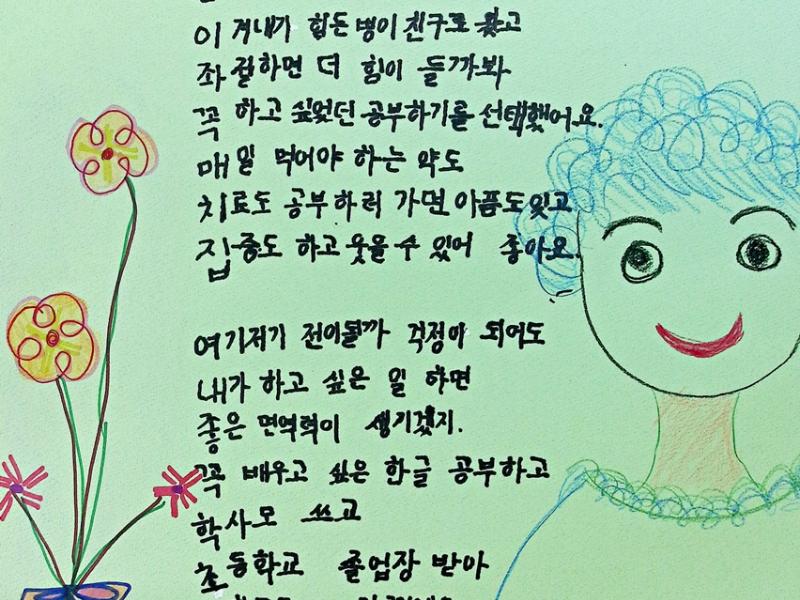 이 겨내기 힘든 병이 친구로 왔고
좌절하면 더 힘이 들까봐
꼭 하고 싶었던 공부하기를 선택했어요.
매일 먹어야 하는 약도
치료도 공부하러 가면 아픔도잊고
집중도 하고 웃을 수 있어 좋아요.
여기저기 전이될까 걱정이 되어도
내가 하고 싶은 일 하면
좋은 면역력이 생기겠지.
꼭 배우고 싶은 한글 공부하고
학사모 쓰고
초등학교 졸업장 받아